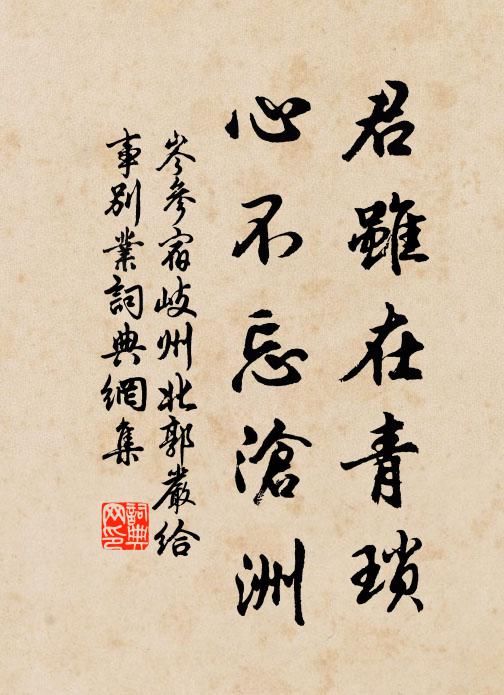 君雖在青瑣
心不忘滄洲
岑參宿岐州北郭嚴給
事別業詞典網集
詞典
网印